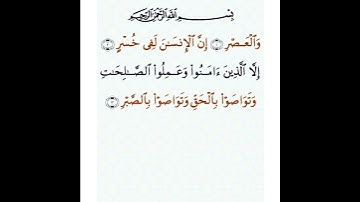 بِسْمِ ٱللَّهِ ٱلرَّحْمَٰنِ ٱلرَّحِيمِ
وَٱلْعَصْرِ ۝١ إِنَّ ٱلْإِنسَٰنَ لَفِى خُسْرٍ ۝٢
إِلَّا ٱلَّذِينَ ءَامَنُوا۟ وَعَمِلُوا۟ ٱلصَّٰلِحَٰتِ
وَتَوَاصَوْا۟ بِٱلْحَقِّ وَتَوَاصَوْا۟ بِٱلصَّبْرِ ۝٣